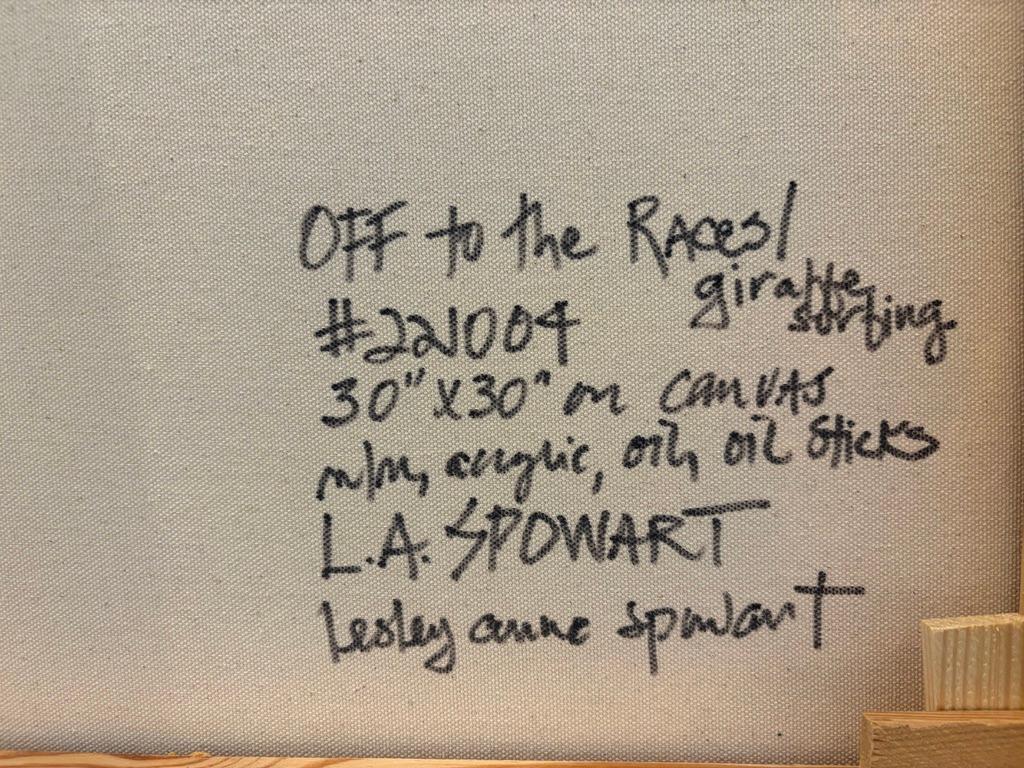 OFF to the RACes/
giraffe
surfing
#221004
30" X 30" on canvas
m/m, acrylic, oil, oil sticks
L.A. SPOWART
Lesley anne spowart